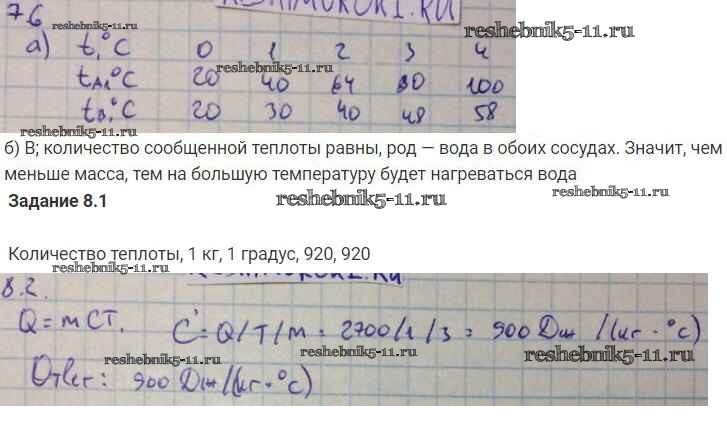 reshebnik5-11.ru
7.6
reshebnik5-11.ru
а) t,°C 0 1 2 3 4
reshebnik5-11.ru
tA,°C 20 40 64 80 100
tB,°C 20 30 40 48 58
reshebnik5-11.ru
б) В; количество сообщенной теплоты равны, род — вода в обоих сосудах. Значит, чем
меньше масса, тем на большую температуру будет нагреваться вода
Задание 8.1 reshebnik5-11.ru reshebnik5-11.ru
Количество теплоты, 1 кг, 1 градус, 920, 920
reshebnik5-11.ru
8.2.
Q = mCT. C = Q/T/m = 2700/1/3 = 900 Дж/(кг·°C)
reshebnik5-11.ru reshebnik5-11.ru reshebnik5-11.ru
Ответ: 900 Дж/(кг·°C)